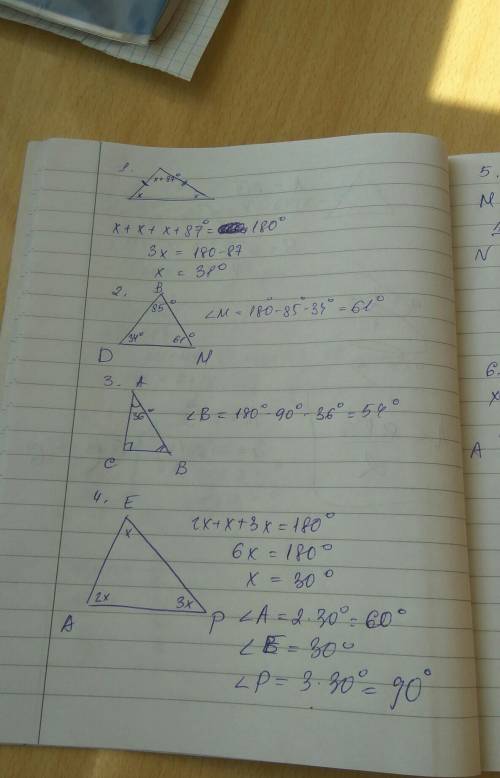 1.
x+87°
x x
x + x + x + 87° = 180°
3x = 180-87
x = 31°
2. B
85°
34° 61°
D M
∠M = 180°-85°-34° = 61°
3. A
36°
C B
∠B = 180°-90°-36° = 54°
4. E
x
2x 3x
A P
2x+x+3x=180°
6x = 180°
x = 30°
∠A = 2·30° = 60°
∠E = 30°
∠P = 3·30° = 90°
5.
M
N
6.
x
A